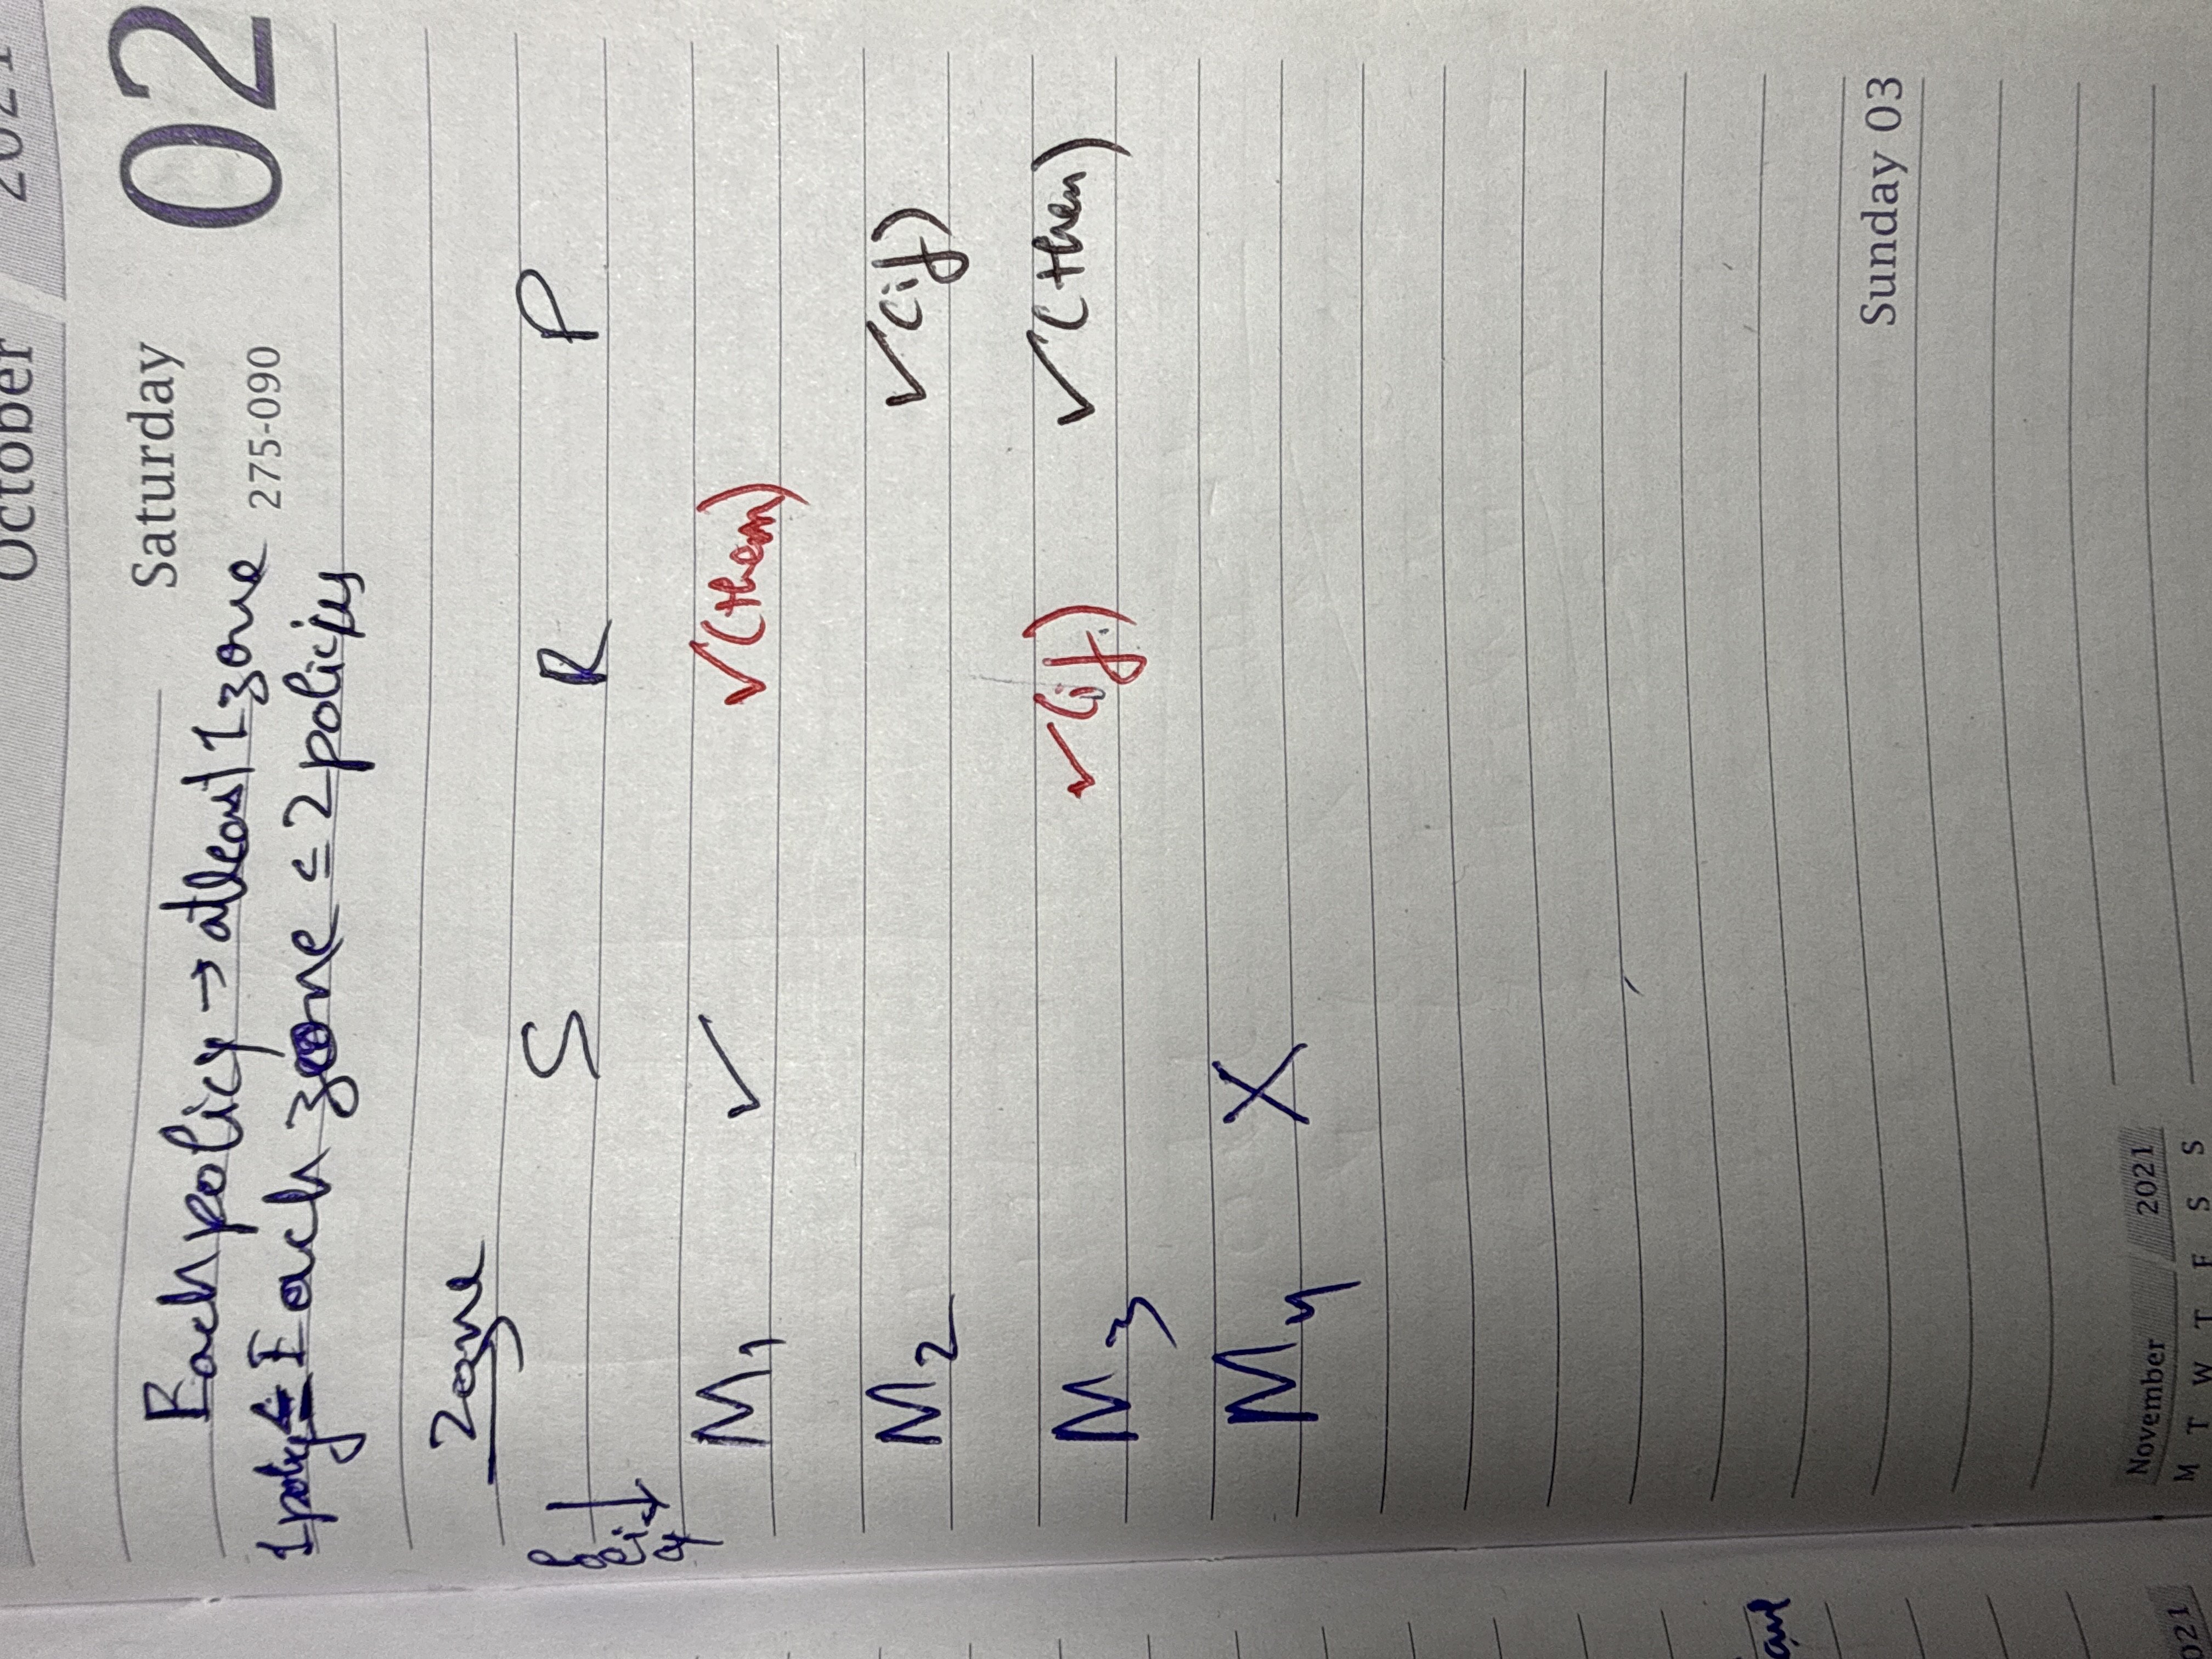 October 2021
Saturday 02
275-090
Each policy → atleast 1 zone
Each zone ≤ 2 policies
Zone
S R P
policy ↓
M1 ✓ ✓(then)
M2 ✓(if)
M3 ✓(if) ✓(then)
M4 X
Sunday 03
November 2021
M T W T F S S
and
021